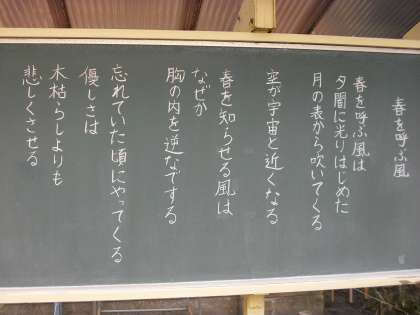 春を呼ぶ風
春を呼ぶ風は
夕闇に光りはじめた
月の表から吹いてくる
空が宇宙と近くなる
春を知らせる風は
なぜか
胸の内を逆なでする
忘れていた頃にやってくる
優しさは
木枯らしよりも
悲しくさせる